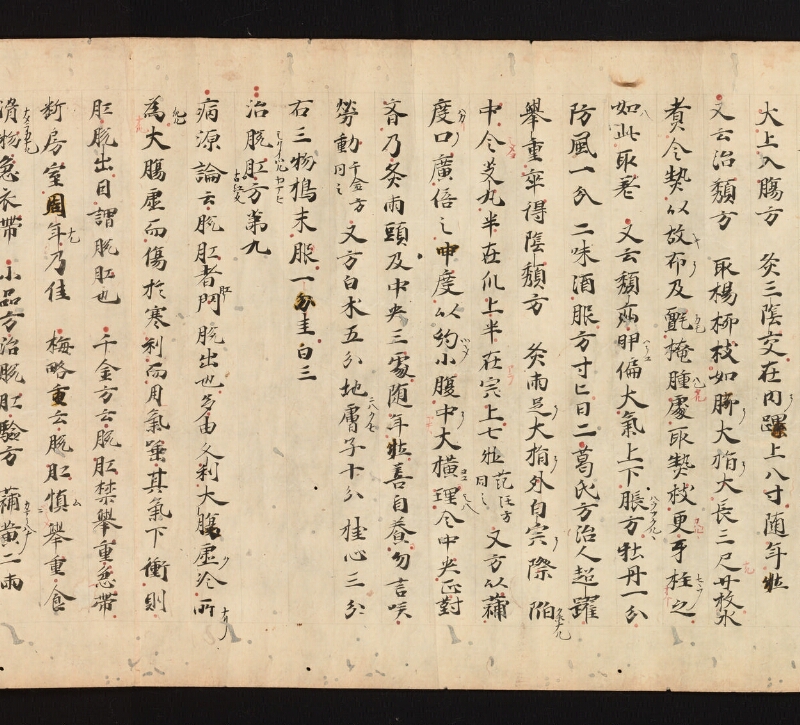 大上入腸方　灸三陰交在内踝上八寸随年壯
又云治㿗方　取楊柳枝如脚大指大長三尺廿枚水
煮令熱以故布及氈掩腫處取熱枝更牙柱之
如此取差　又云㿗疝卵偏大氣上下脹方牡丹一分
防風一分　二味酒服方寸匕日二葛氏方治人超躍
舉重卒得陰㿗方　灸兩足大指外白宍際陷
中令艾丸半在爪上半在宍上七壯范汪方同之　又方以蒲
度口廣倍之申度以約小腹中大橫理令中央正對
齊乃灸兩頭及中央三處随年壯善自養勿言咲
勞動千金方同之　又方白术五分地膚子十分　桂心三分
右三物搗末服一刀圭日三
治脱肛方第九
病源論云脱肛者肛門脱出也多由久利大腸虛冷所
為大腸虛而傷於寒利而用氣㽷其氣下衝則
肛脱出因謂脱肛也　千金方云脱肛禁舉重急帶
斷房室周年乃佳　梅略重云脱肛慎舉重食
滑物急衣帶　小品方治脱肛驗方　蒲黃二兩